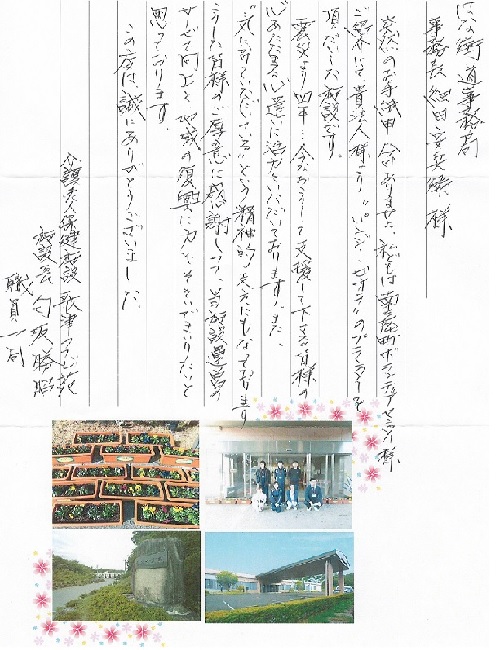 にな街道事務局
事務長 細田 様
突然のお手紙申し訳ありません。私どもは南三陸町ボランティアセンター様
ご紹介にて貴法人様より、パンジー・ビオラのプランターを
頂だいした施設です。
震災より四年…今なおこうして支援して下さる皆様の
心あたたまる心遣いに
気に掛けていただいているという精神的な支えにもなっております
こうした皆様のご厚意に感謝しつつ、当施設運営の
サービス向上と地域の復興に力をそそいでまいりたいと
思っております。
この度は、誠にありがとうございました。
介護老人保健施設 歌津つつじ苑
施設長
職員一同